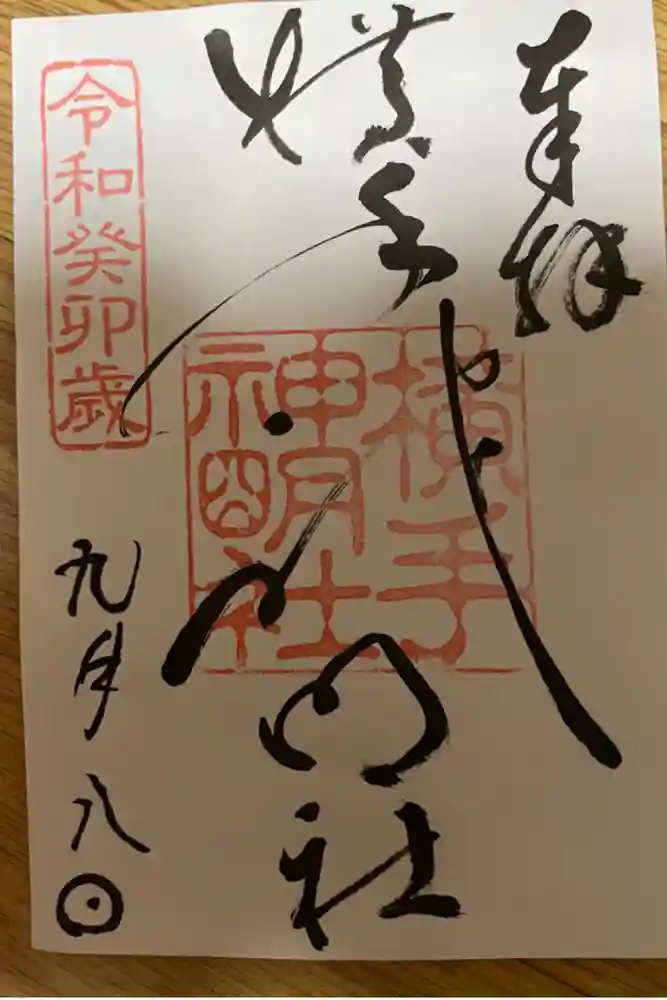 奉拝
横手神明社
横手
神明社
令和癸卯歳
九月八日